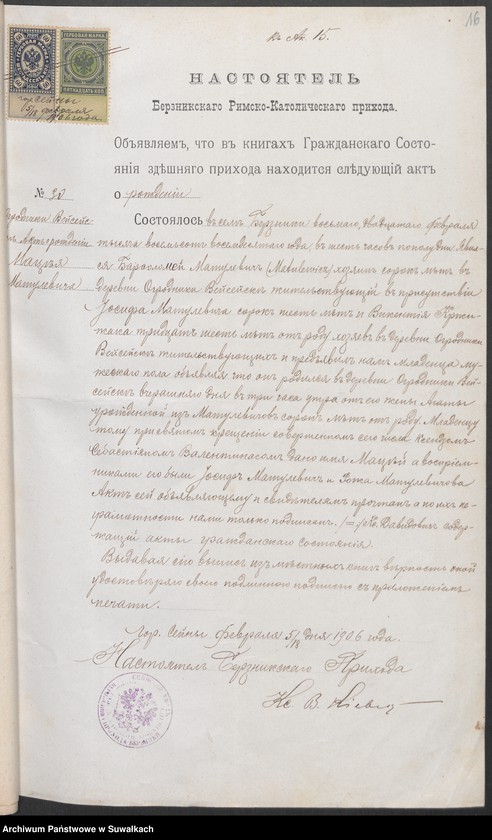 16
къ Ак. 15.
ГЕРБОВАЯ МАРКА
гор Сейны
5/18 февраля
1906 года
НАСТОЯТЕЛЬ
Берзникскаго Римско-Католическаго прихода.
Объявляемъ, что въ книгахъ Гражданскаго Состо-
янія здѣшняго прихода находится слѣдующій актъ
о рожденіи
№ 30
Огродники Вейсте-
Актъ рожденія
Мацѣя
Матулевича
Состоялось въ селѣ Берзники восьмаго, двадцатаго февраля
тысяча восемьсотъ восемидесятаго года, въ шесть часовъ пополудни. Явил-
ся Барѳоломей Матулевичъ (Matulewicz) хозяинъ сорокъ лѣтъ въ
деревни Огродники Вейсейскъ жительствующій въ присутствіи
Іосифа Матулевича сорокъ шесть лѣтъ и Викентія
тридцать шесть лѣтъ отъ роду хозяевъ въ деревни Огродники
Вейсейскъ жительствующихъ и предъявилъ намъ младенца му-
жескаго пола объявляя что онъ родился въ деревни Огродники Вей-
сейскъ вчерашняго дня въ три часа утра отъ его жены Агаты
урожденной изъ Матулевичовъ сорокъ лѣтъ отъ роду. Младенцу
тому при святомъ крещеніи совершенномъ сего числа Ксендзомъ
Себастіяномъ Валентиасомъ дано имя Мацѣй а воспріем-
никами его были Іосифъ Матулевичъ и Матулевичова
Актъ сей объявляющему и свидѣтелямъ прочтанъ а по ихъ не-
грамотности нами только подписанъ. /=/ Кс. Давидовичъ Содер-
жащій акты гражданскаго состоянія.
Выдавая сію выпись изъ мѣстныхъ книгъ вѣрность оной
удостовѣряю своею подлинною подписью съ приложеніемъ
печати.
Гор. Сейны Февраля 5/18 дня 1906 года.
Настоятель Берзникскаго Прихода
Кс. В.
Archiwum Państwowe w Suwałkach